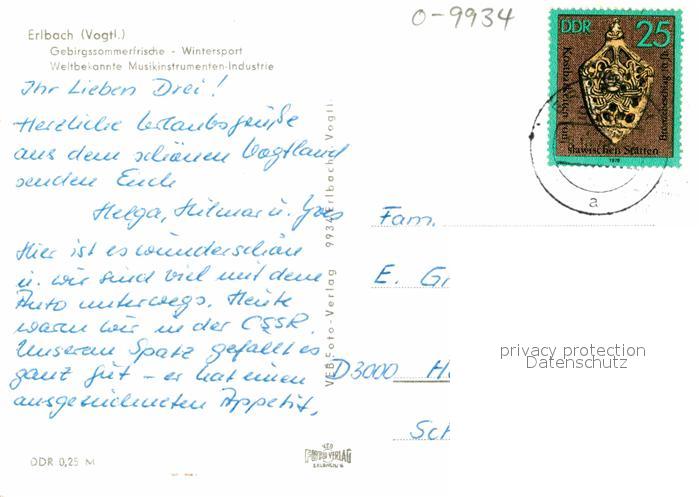 O-9934
Erlbach (Vogtl.)
Gebirgssommerfrische - Wintersport
Weltbekannte Musikinstrumenten-Industrie
DDR 25
Kostbarkeiten
slawischen Stätten
Bronzebeschlag 10. Jh.
1978
a
Ihr Lieben Drei!
Herzliche Urlaubsgrüße
aus dem schönen Vogtland
senden Euch
Helga, Hilmar u.
Hier ist es wunderschön
u. wir sind viel mit dem
Auto unterwegs. Heute
waren wir in der CSSR.
Unserem Spatz gefällt es
ganz gut – er hat einen
ausgezeichneten Appetit.
VEB Foto-Verlag 9934 Erlbach i. Vogtl.
Fam.
E. Gr
D3000 H
Sch
privacy protection
Datenschutz
DDR 0,25 M
VEB
FOTO VERLAG